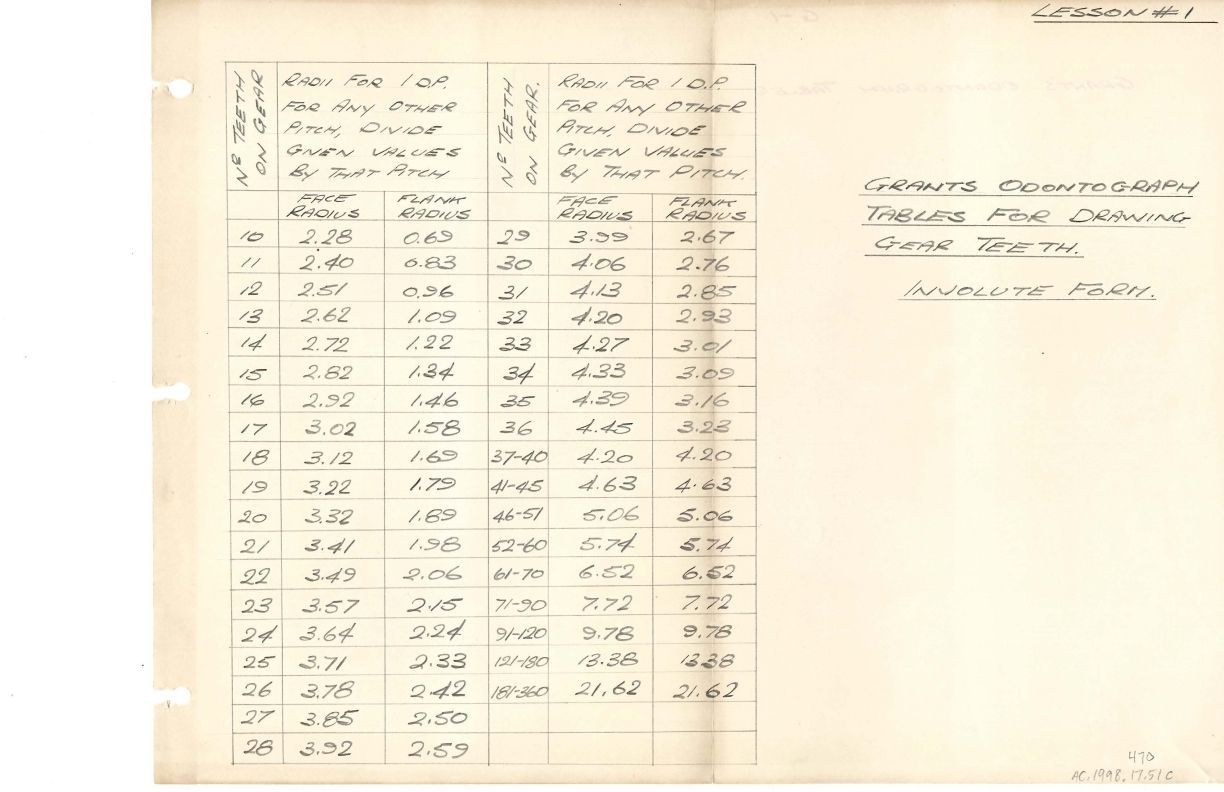 LESSON #1
Nº TEETH ON GEAR
RADII FOR 1 D.P.
FOR ANY OTHER
PITCH, DIVIDE
GIVEN VALUES
BY THAT PITCH
Nº TEETH ON GEAR.
RADII FOR 1 D.P.
FOR ANY OTHER
PITCH, DIVIDE
GIVEN VALUES
BY THAT PITCH.
FACE RADIUS FLANK RADIUS FACE RADIUS FLANK RADIUS
10 2.28 0.69 29 3.99 2.67
11 2.40 0.83 30 4.06 2.76
12 2.51 0.96 31 4.13 2.85
13 2.62 1.09 32 4.20 2.93
14 2.72 1.22 33 4.27 3.01
15 2.82 1.34 34 4.33 3.09
16 2.92 1.46 35 4.39 3.16
17 3.02 1.58 36 4.45 3.23
18 3.12 1.69 37-40 4.20 4.20
19 3.22 1.79 41-45 4.63 4.63
20 3.32 1.89 46-51 5.06 5.06
21 3.41 1.98 52-60 5.74 5.74
22 3.49 2.06 61-70 6.52 6.52
23 3.57 2.15 71-90 7.72 7.72
24 3.64 2.24 91-120 9.78 9.78
25 3.71 2.33 121-180 13.38 13.38
26 3.78 2.42 181-360 21.62 21.62
27 3.85 2.50
28 3.92 2.59
GRANTS ODONTOGRAPH
TABLES FOR DRAWING
GEAR TEETH.
INVOLUTE FORM.
470
AC.1998.17.51C